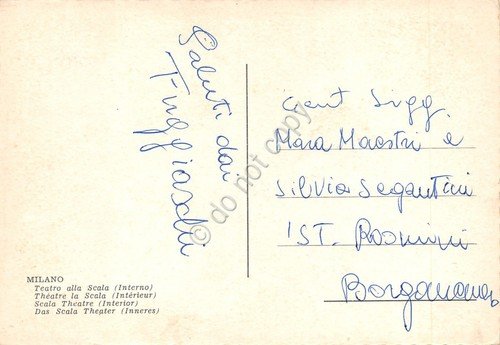 Saluti dai
Fuggiaschi
Gent Sigg.
Mara Maestri e
Silvia Segantini
IST. Rosmini
Borgomanero
MILANO
Teatro alla Scala (Interno)
Théatre la Scala (Intérieur)
Scala Theatre (Interior)
Das Scala Theater (Inneres)
© do not copy